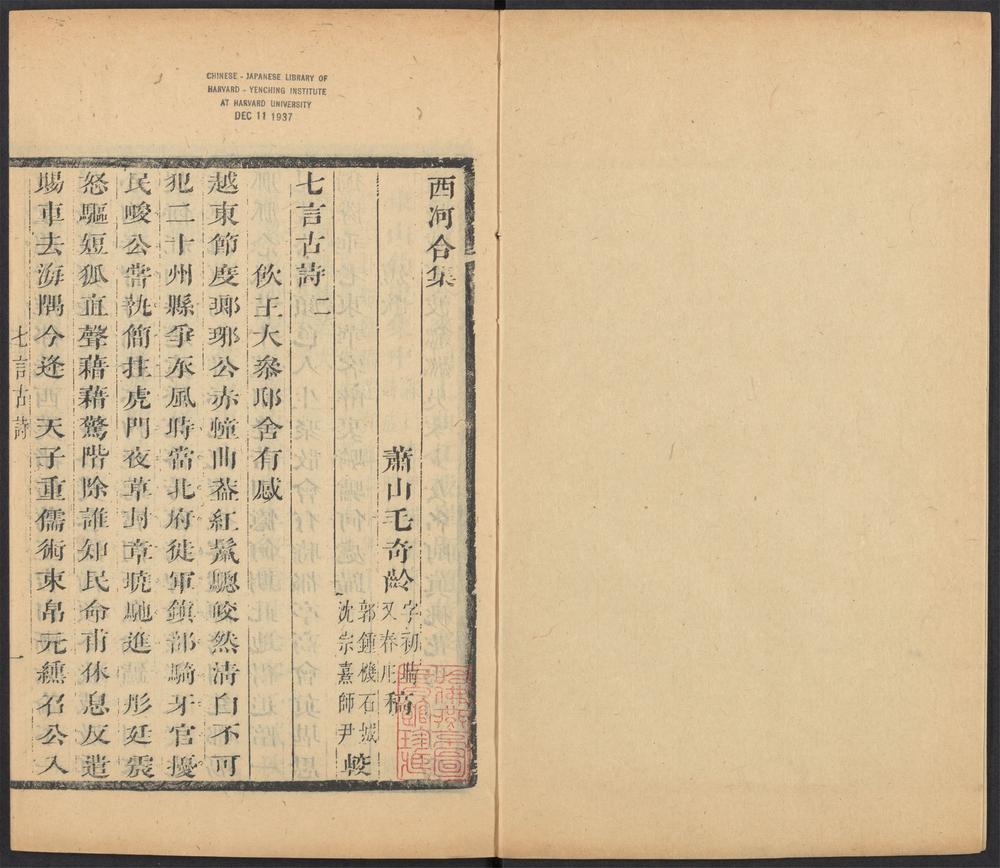 CHINESE - JAPANESE LIBRARY OF
HARVARD - YENCHING INSTITUTE
AT HARVARD UNIVERSITY
DEC 11 1937
西河合集
蕭山毛奇齡字初晴又春庄稿
七言古詩二
郭鍾機石城沈宗熹師尹較
飲王大叅邸舍有感
越東節度瑯琊公赤幢曲葢紅鬃驄皎然清白不可
犯二十州縣爭東風時當北府徙軍鎮部騎牙官擾
民畯公嘗執簡拄虎門夜草封章曉馳進彤廷震
怒驅短狐直聲藉藉驚階除誰知民命甫休息反遣
賜車去海隅今逢天子重儒術束帛元纁名公入
七言古詩
一